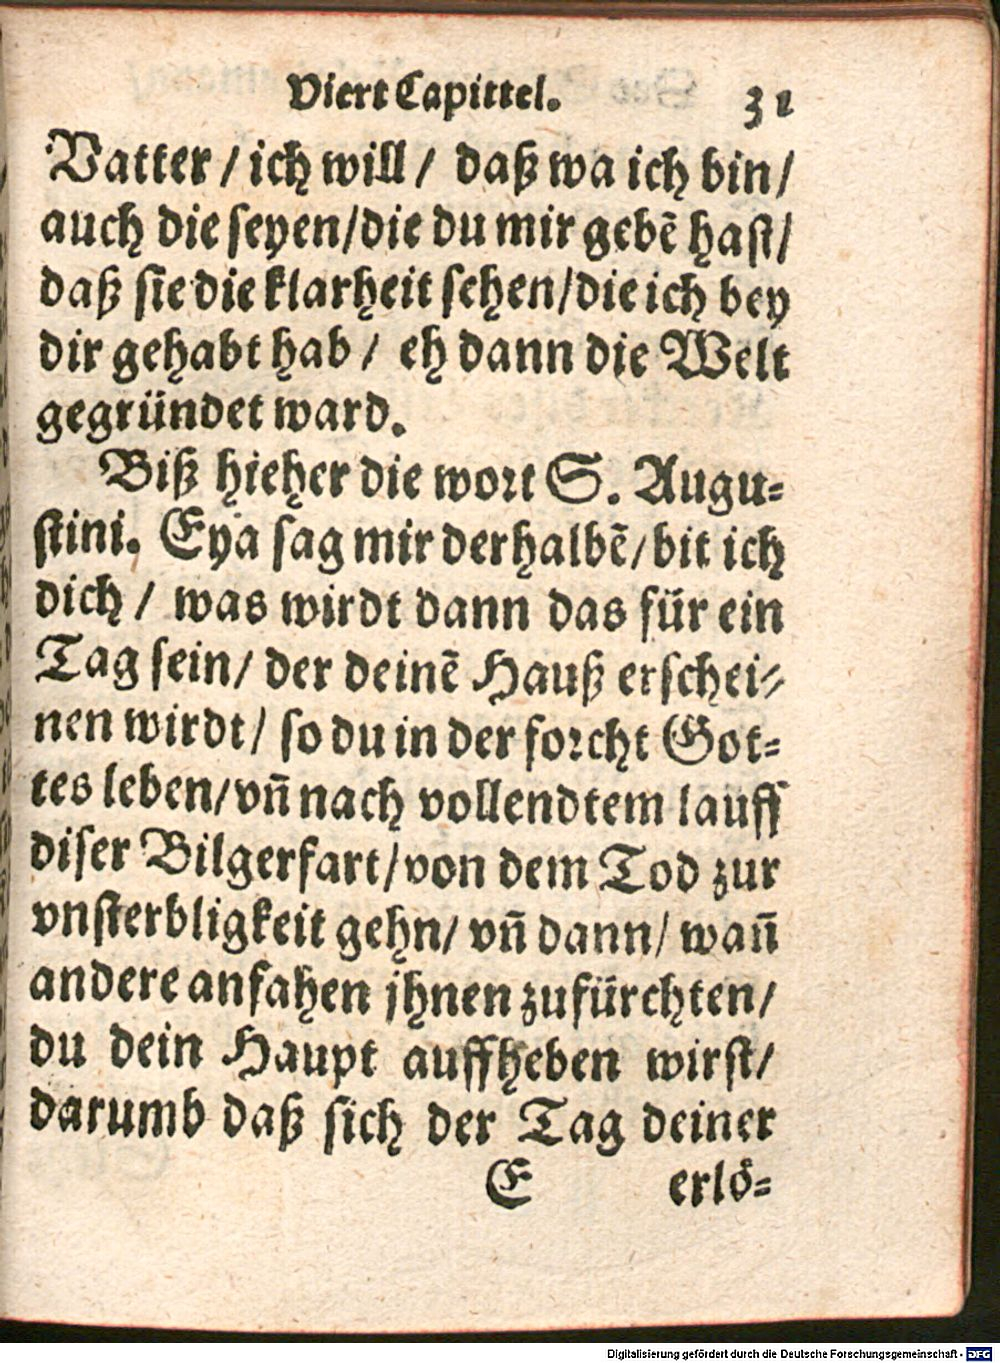 Viert Capittel. 31
Vatter / ich will / daß wa ich bin/
auch die seyen/die du mir gebẽ hast/
daß sie die klarheit sehen/die ich bey
dir gehabt hab / eh dann die Welt
gegründet ward.
Biß hieher die wort S. Augu-
stini. Eya sag mir derhalbẽ/bit ich
dich / was wirdt dann das für ein
Tag sein/ der deinẽ Hauß erschei-
nen wirdt/ so du in der forcht Got-
tes leben/vñ nach vollendtem lauff
diser Bilgerfart/von dem Tod zur
vnsterbligkeit gehn/ vñ dann/ wañ
andere anfahen jhnen zufürchten/
du dein Haupt auffheben wirst/
darumb daß sich der Tag deiner
E erlö-
Digitalisierung gefördert durch die Deutsche Forschungsgemeinschaft - DFG